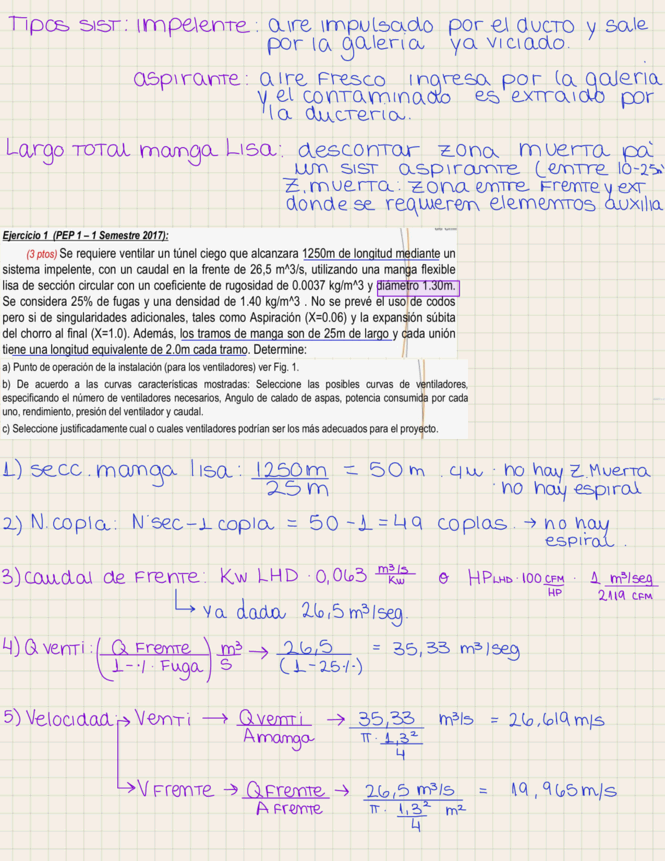 Tipos sist: impelente: aire impulsado por el ducto y sale
por la galeria ya viciado.
aspirante: aire fresco ingresa por la galeria
y el contaminado es extraido por
la ducteria.
Largo total manga lisa: descontar zona muerta pa'
un sist aspirante (entre 10-25
Z. muerta: zona entre frente y ext
donde se requieren elementos auxilia
Ejercicio 1 (PEP 1 – 1 Semestre 2017):
(3 ptos) Se requiere ventilar un túnel ciego que alcanzara 1250m de longitud mediante un
sistema impelente, con un caudal en la frente de 26,5 m^3/s, utilizando una manga flexible
lisa de sección circular con un coeficiente de rugosidad de 0.0037 kg/m^3 y diámetro 1.30m.
Se considera 25% de fugas y una densidad de 1.40 kg/m^3 . No se prevé el uso de codos
pero si de singularidades adicionales, tales como Aspiración (X=0.06) y la expansión súbita
del chorro al final (X=1.0). Además, los tramos de manga son de 25m de largo y cada unión
tiene una longitud equivalente de 2.0m cada tramo. Determine:
a) Punto de operación de la instalación (para los ventiladores) ver Fig. 1.
b) De acuerdo a las curvas características mostradas: Seleccione las posibles curvas de ventiladores,
especificando el número de ventiladores necesarios, Angulo de calado de aspas, potencia consumida por cada
uno, rendimiento, presión del ventilador y caudal.
c) Seleccione justificadamente cual o cuales ventiladores podrían ser los más adecuados para el proyecto.
1) secc. manga lisa: 1250m / 25m = 50m · no hay Z. Muerta
· no hay espiral
2) N. copla: N°sec - 1 copla = 50 - 1 = 49 coplas. → no hay
espiral.
3) caudal de frente: Kw LHD · 0,063 m³/s / Kw o HP LHD · 100 CFM / HP · 1 m³/seg / 2119 CFM
↳ ya dada 26,5 m³/seg.
4) Q venti: (Q Frente / 1-% Fuga) m³/s → 26,5 / (1-25%) = 35,33 m³/seg
5) Velocidad → Venti → Q venti / A manga → 35,33 m³/s / π · 1,3² / 4 = 26,619 m/s
↳ V Frente → Q Frente / A Frente → 26,5 m³/s / π · 1,3² / 4 m² = 19,965 m/s